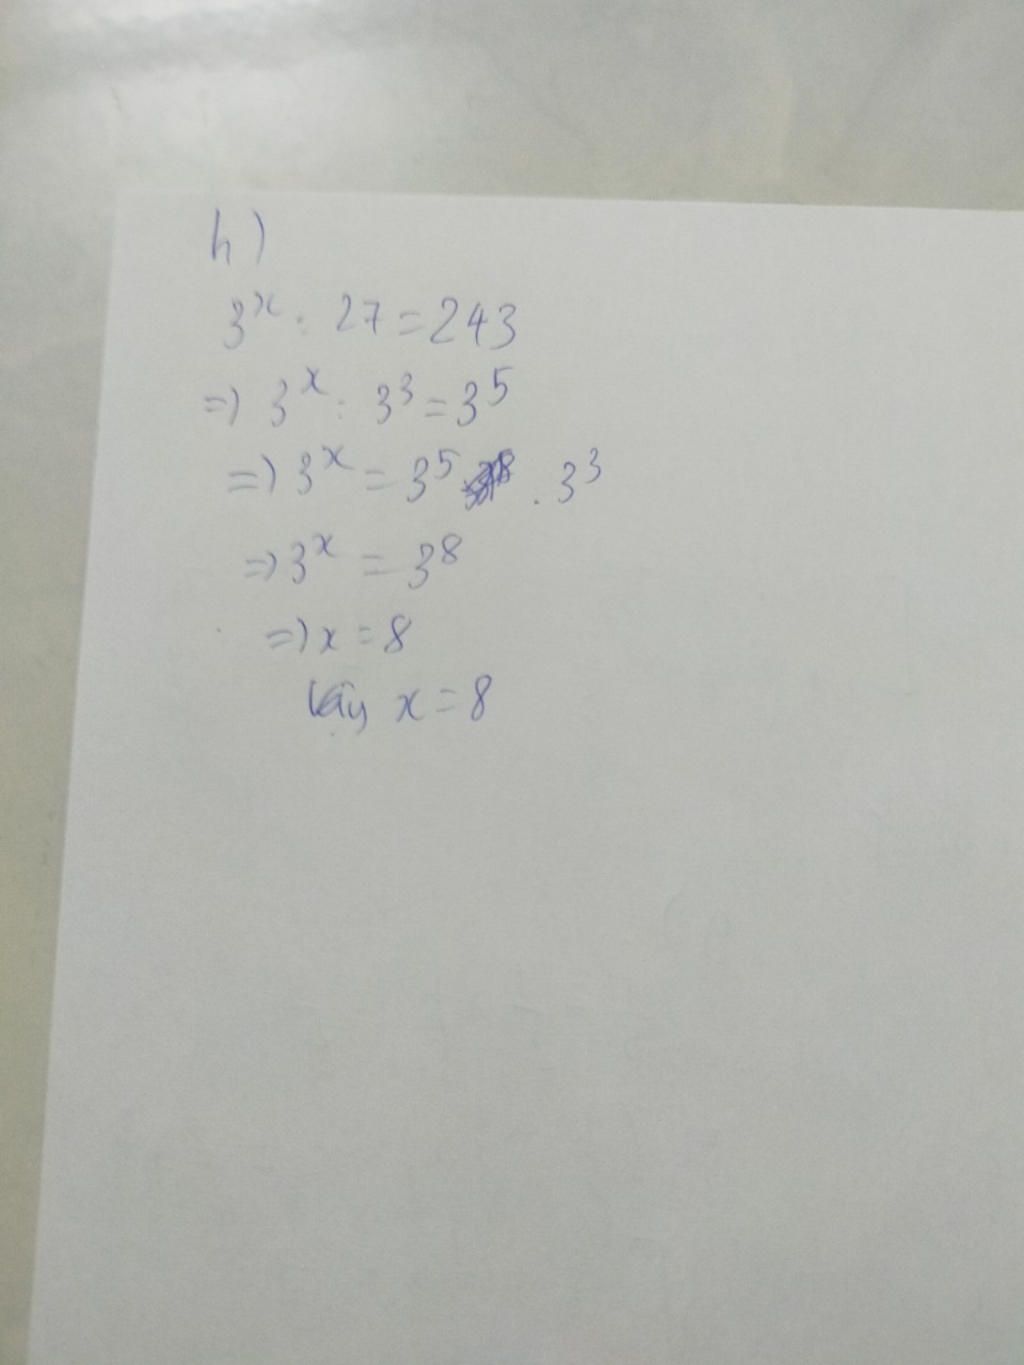 h)
3^x : 27 = 243
=) 3^x : 3^3 = 3^5
=) 3^x = 3^5 . 3^3
=) 3^x = 3^8
=) x = 8
Vậy x = 8